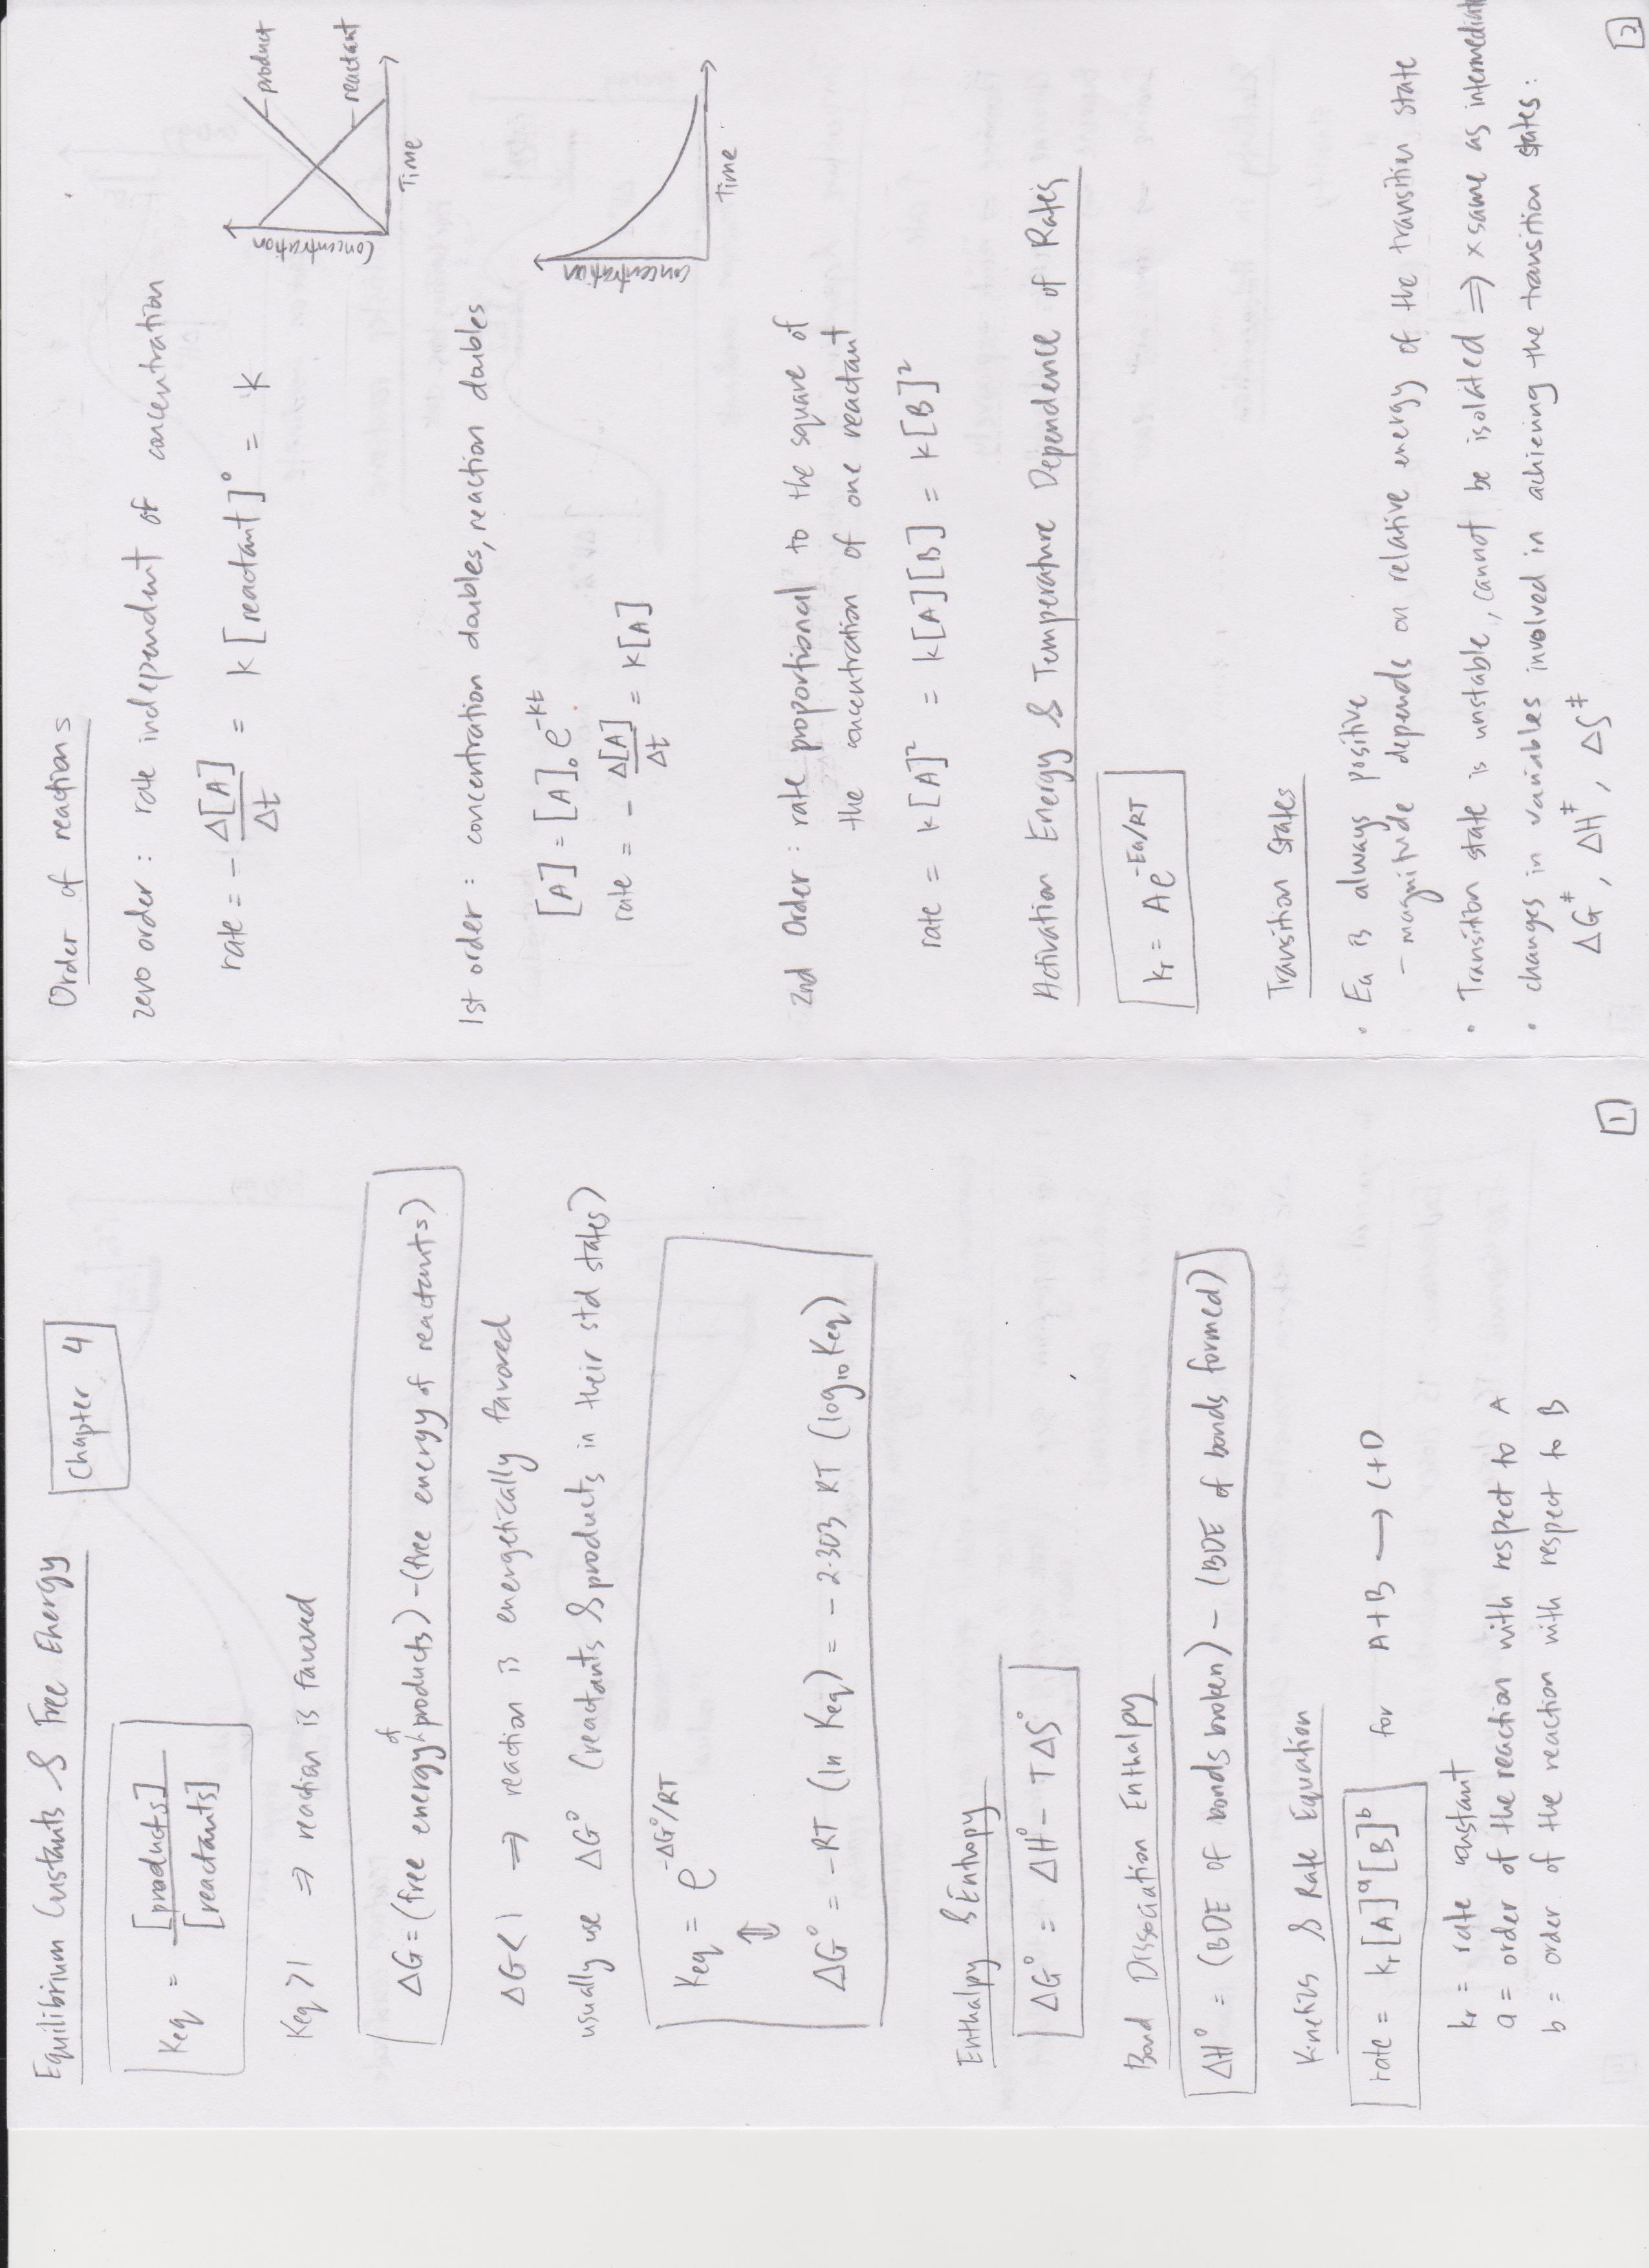 Chapter 4
Equilibrium Constants & Free Energy
Keq = [products] / [reactants]
Keq >1 ⇒ reaction is favored
ΔG = (free energy of products) - (free energy of reactants)
ΔG < 1 ⇒ reaction is energetically favored
usually use ΔG° (reactants & products in their std states)
Keq = e^-ΔG°/RT
⇕
ΔG° = -RT (ln Keq) = -2.303 RT (log10 Keq)
Enthalpy & Entropy
ΔG° = ΔH° - TΔS°
Bond Dissociation Enthalpy
ΔH° = (BDE of bonds broken) - (BDE of bonds formed)
Kinetics & Rate Equation
rate = kr [A]^a [B]^b for A+B → C+D
kr = rate constant
a = order of the reaction with respect to A
b = order of the reaction with respect to B
1
Order of reactions
zero order : rate independent of concentration
rate = - Δ[A]/Δt = k [reactant]° = k
concentration
product
reactant
Time
1st order : concentration doubles, reaction doubles
[A] = [A]₀ e^-kt
rate = - Δ[A]/Δt = k[A]
concentration
Time
2nd Order : rate proportional to the square of
the concentration of one reactant
rate = k[A]² = k[A][B] = k[B]²
Activation Energy & Temperature Dependence of Rates
kr = Ae^-Ea/RT
Transition States
• Ea is always positive
- magnitude depends on relative energy of the transition state
• Transition state is unstable, cannot be isolated ⇒ x same as intermediate
• changes in variables involved in achieving the transition states :
ΔG‡, ΔH‡, ΔS‡
2